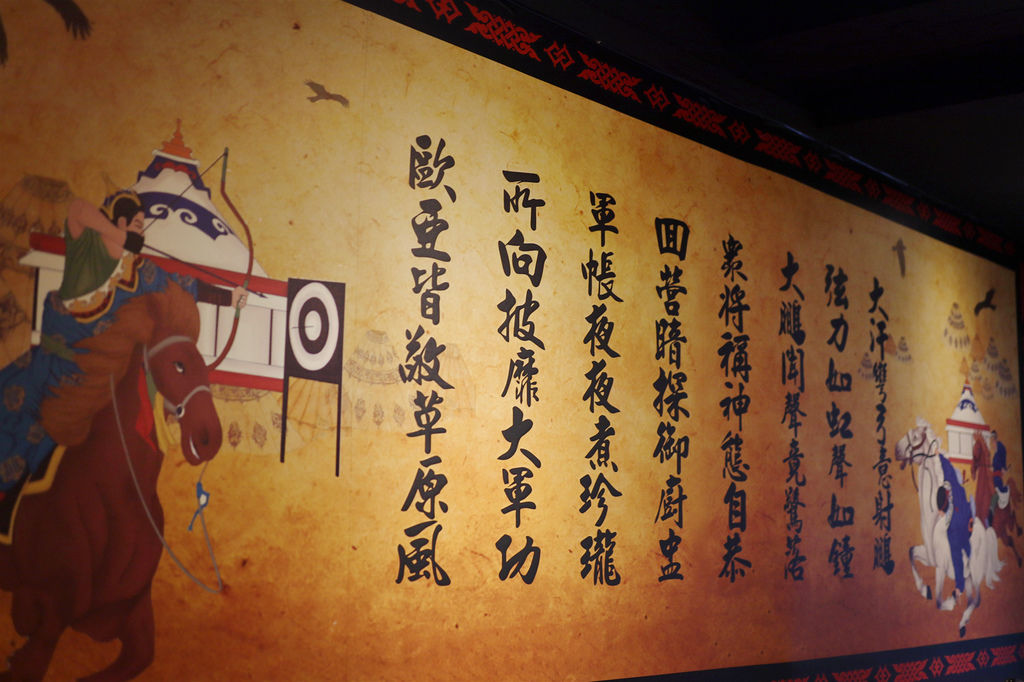 大汗彎弓意射鵬
弦力如虹聲如鐘
大鵬聞聲竟驚落
眾將稱神態自恭
回營暗探御廚盅
軍帳夜夜煮珍瓏
所向披靡大軍功
歐亞皆敬草原風